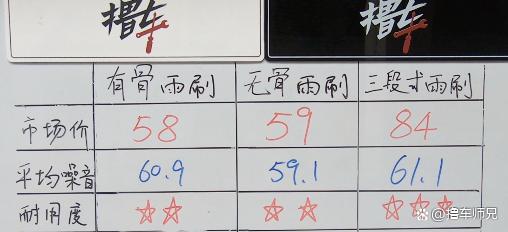 撸车 撸车
有骨雨刷 无骨雨刷 三段式雨刷
市场价 58 59 84
平均噪音 60.9 59.1 61.1
耐用度 ☆☆ ☆☆ ☆☆☆
@撸车师兄